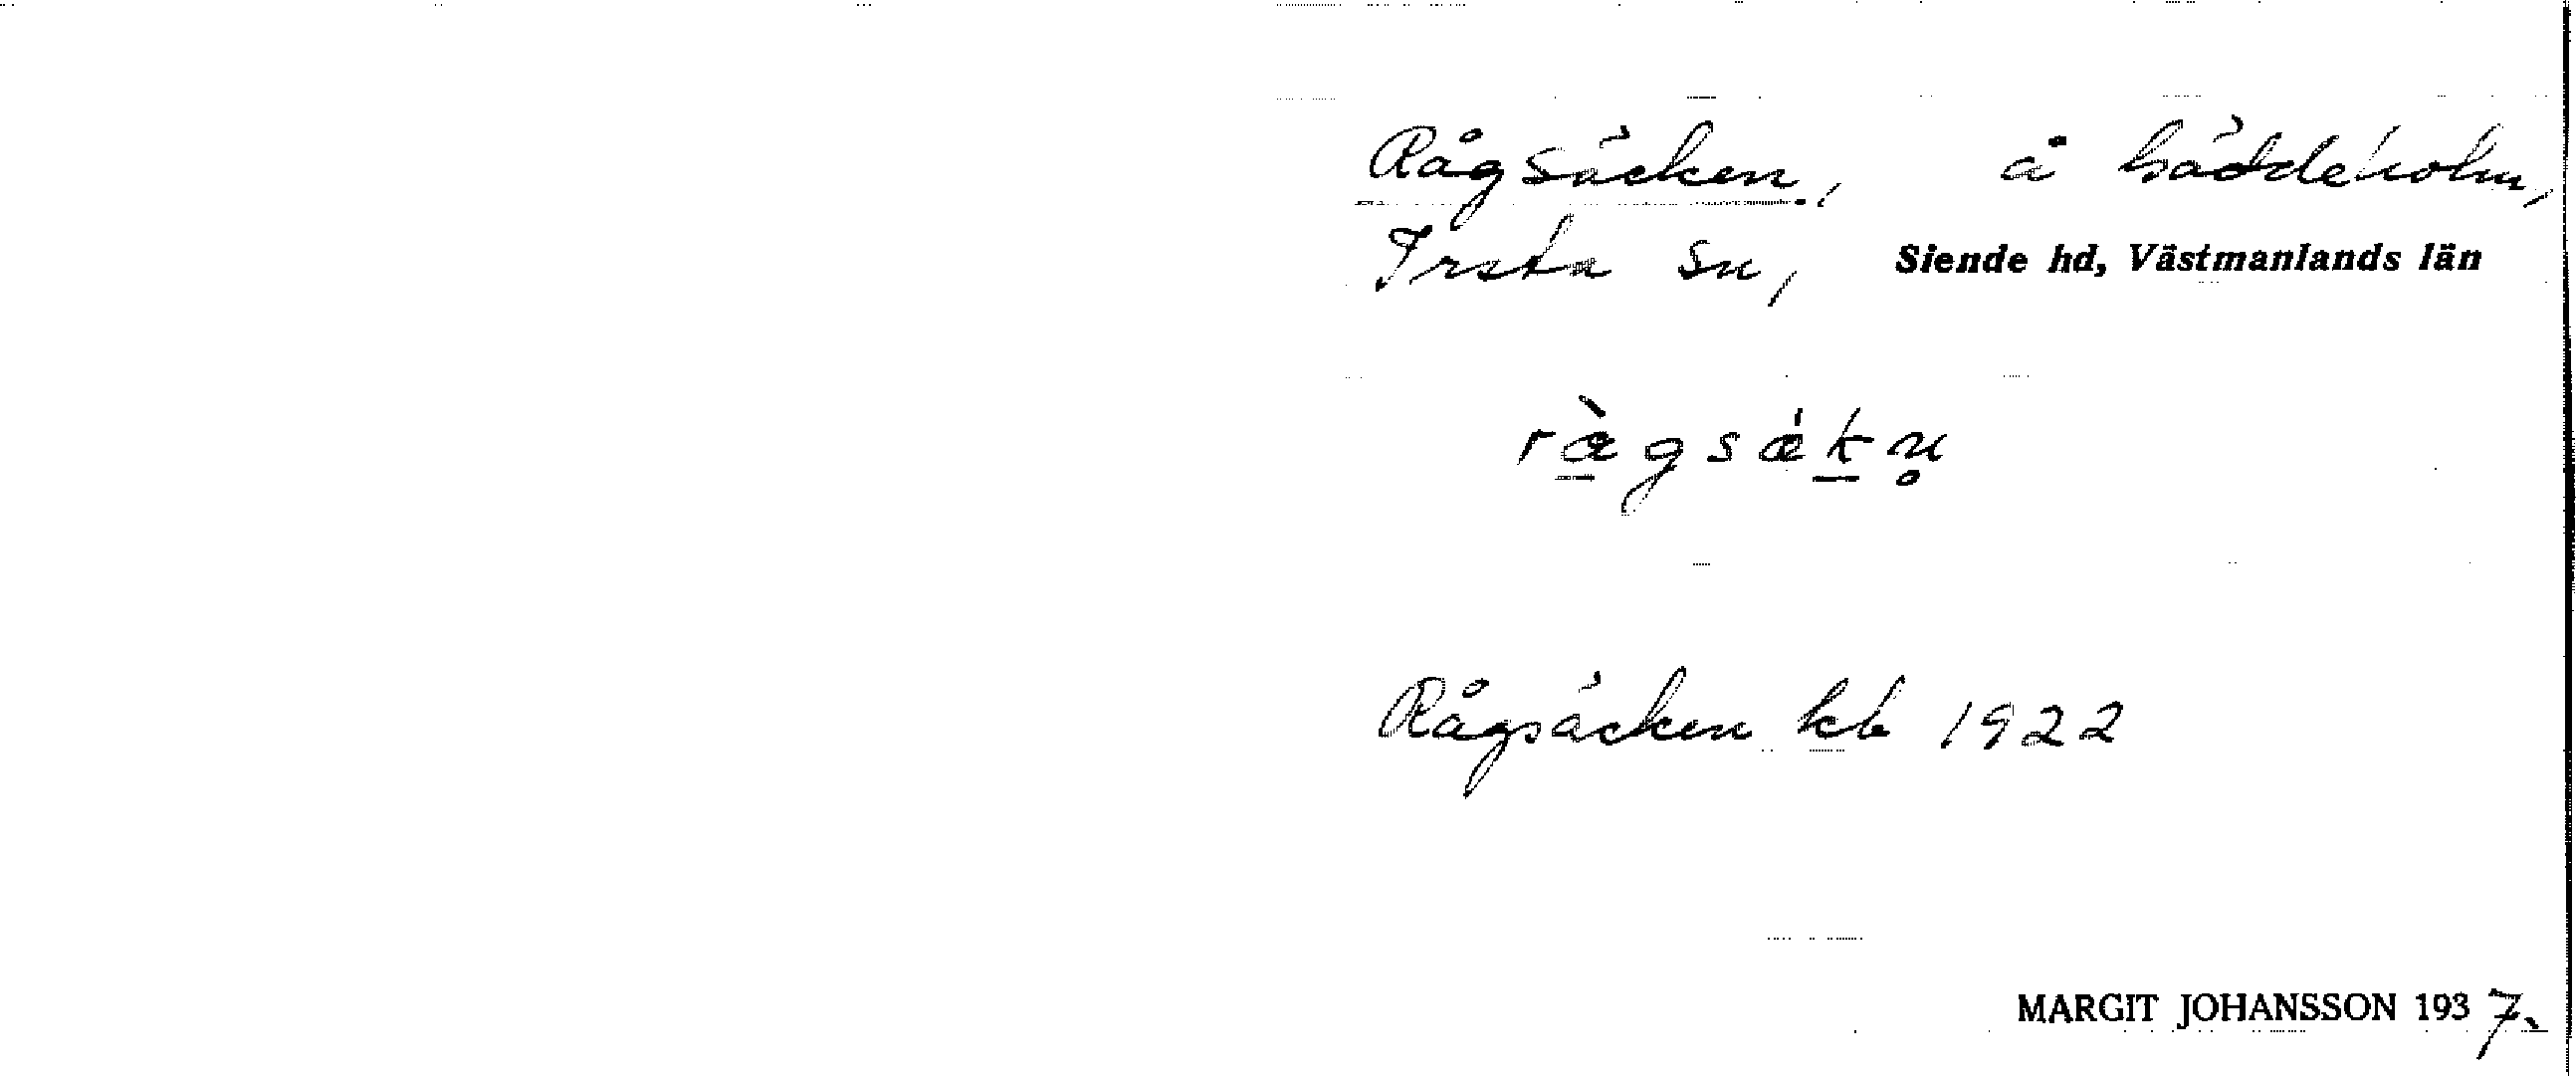 Rågsäcken, å Gäddeholm,
Irsta sn, Siende hd, Västmanlands län
Rågsäcken kb 1922
MARGIT JOHANSSON 1937.